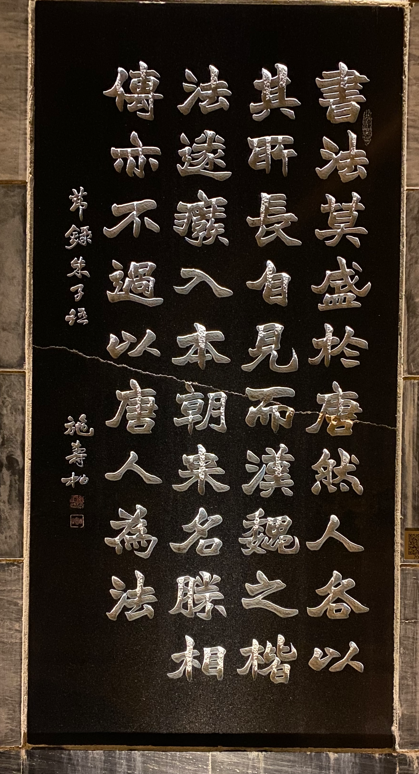 書法莫盛於唐然人各以
其所長自見而漢魏之楷
法遂廢入本朝来名勝相
傳亦不過以唐人為法
節録朱子語
施壽柏